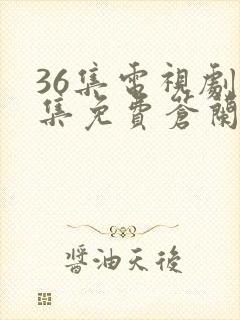 36集電視劇
集免費蒼蘭
醬油天後